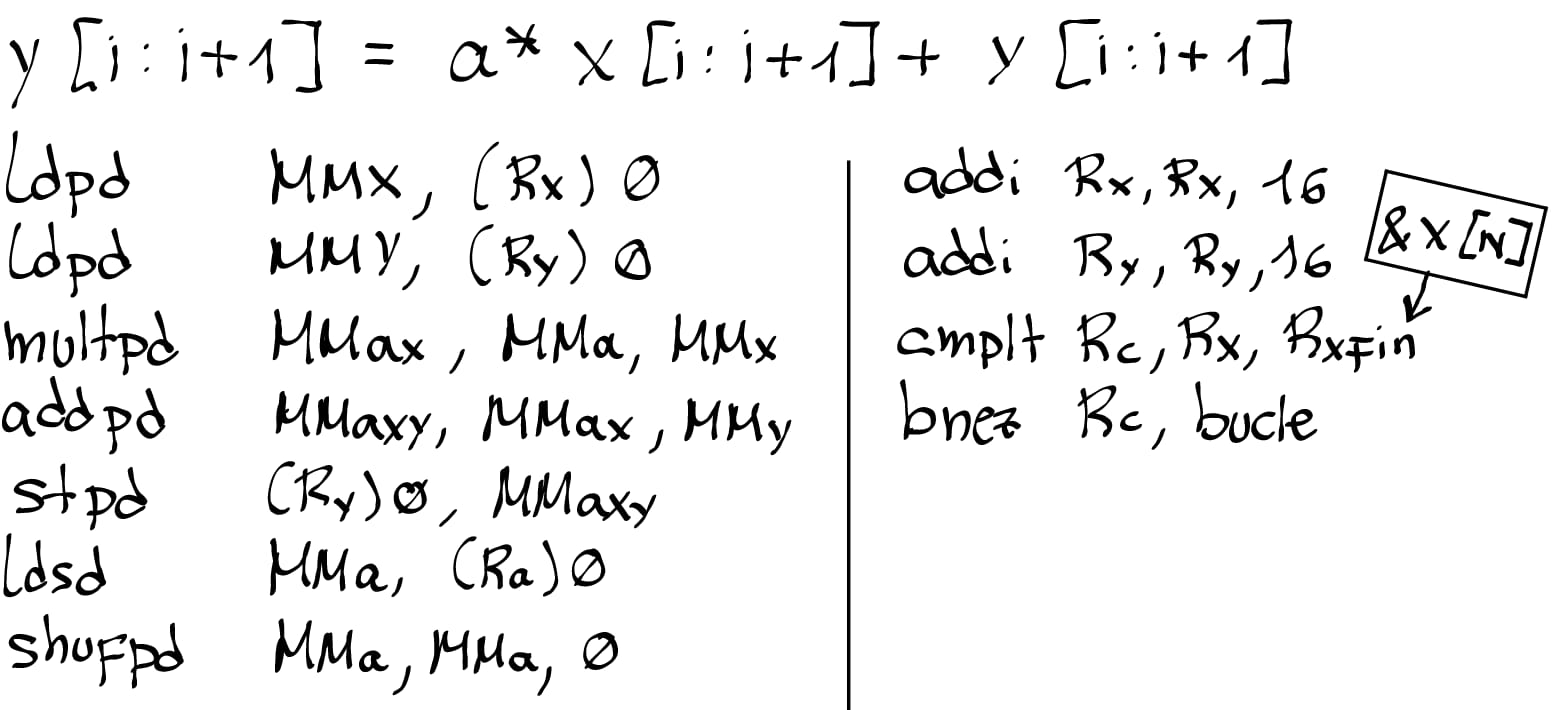 y [i:i+1] = a* x [i:i+1] + y [i:i+1]
ldpd MMX, (Rx) 0
ldpd MMY, (Ry) 0
multpd MMax, MMa, MMx
addpd MMaxy, MMax, MMy
stpd (Ry)0, MMaxy
ldsd MMa, (Ra)0
shufpd MMa, MMa, 0
addi Rx, Rx, 16
addi Ry, Ry, 16
&x[N]
cmplt Rc, Rx, RxFin
bnez Rc, bucle